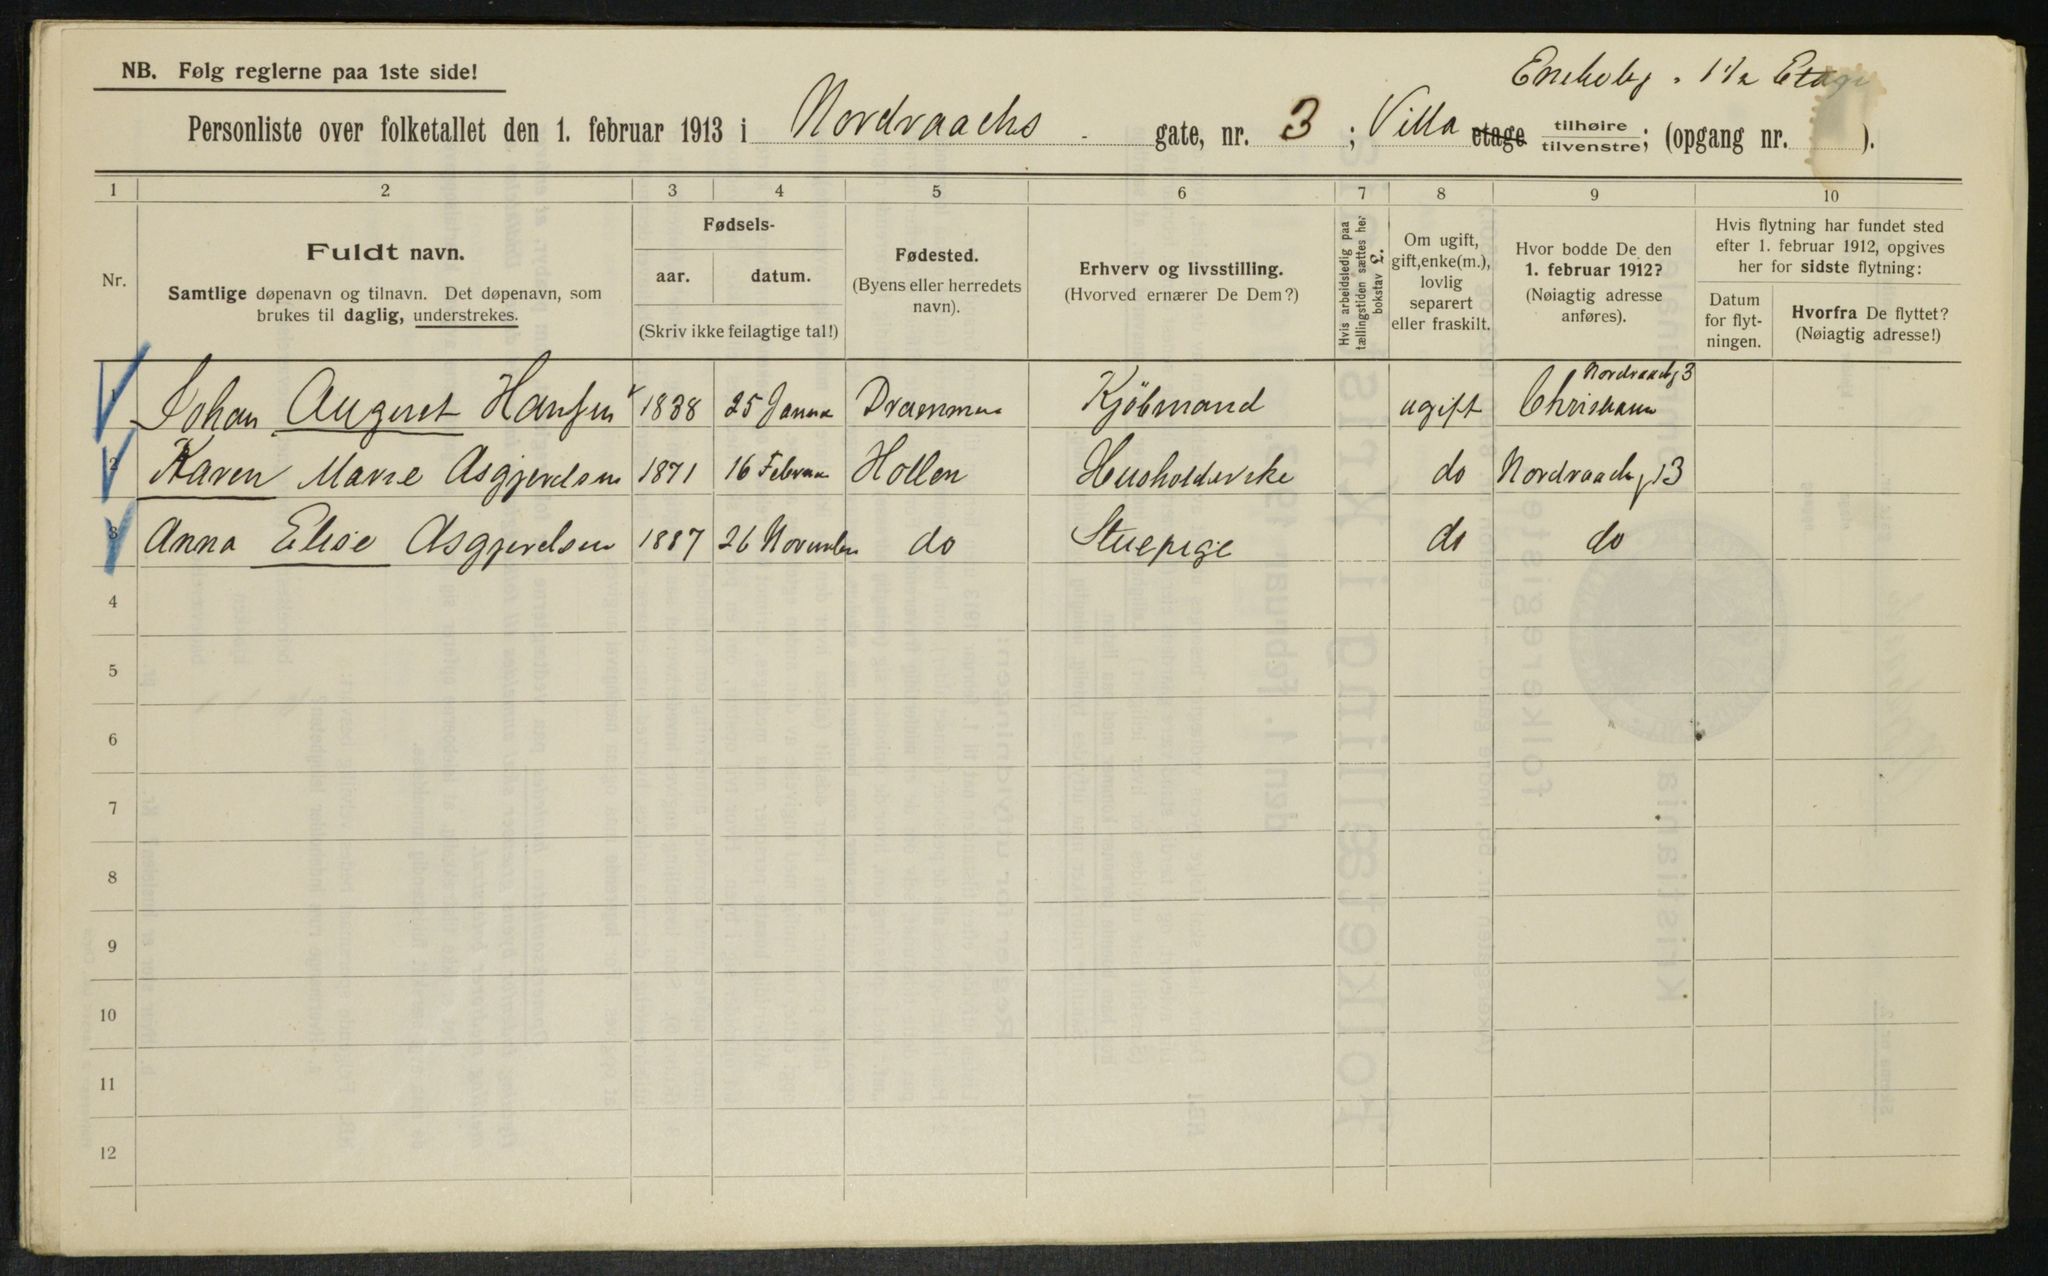 NB. Følg reglerne paa 1ste side!
1½ Etage
Personliste over folketallet den 1. februar 1913 i Nordraachs gate, nr. 3; Villa etage tilhøire/tilvenstre; (opgang nr. ).
1 2 3 4 5 6 7 8 9 10
Nr.
Fuldt navn.
Samtlige døpenavn og tilnavn. Det døpenavn, som
brukes til daglig, understrekes.
Fødsels-
aar. datum.
(Skriv ikke feilagtige tal!)
Fødested.
(Byens eller herredets
navn).
Erhverv og livsstilling.
(Hvorved ernærer De Dem?)
Hvis arbeidsledig paa
tællingstiden sættes her
bokstav L.
Om ugift,
gift, enke(m.),
lovlig
separert
eller fraskilt.
Hvor bodde De den
1. februar 1912?
(Nøiagtig adresse
anføres).
Hvis flytning har fundet sted
efter 1. februar 1912, opgives
her for sidste flytning:
Datum
for flyt-
ningen.
Hvorfra De flyttet?
(Nøiagtig adresse!)
Nordraachg 3
1 Johan August Hansen 1838 25 Janua Drammen Kjöbmand ugift Christiania
2 Karen Marie Asgjerdsen 1871 16 Februa Hollen Husholderske do Nordraachg 13
3 Anna Elise Asgjerdsen 1887 26 November do Stuepige do do
4
5
6
7
8
9
10
11
12